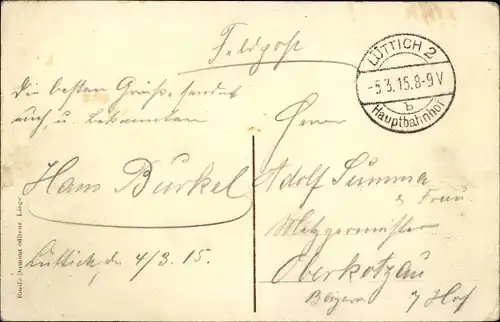 Feldpost
LÜTTICH 2
-5.3.15.8-9V
b
Hauptbahnhof
Die besten Grüße sendet
euch, u. Bekannten
Hans Burkel
Lüttich, de 4/3. 15.
Herrn
Adolf Summa
& Frau
Metzgermeister
Oberkotzau
Bayern b/ Hof
Dumont éditeur, Liége